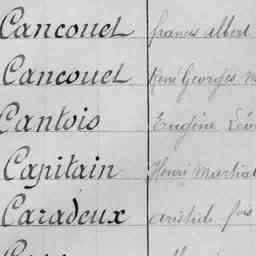 Cancouet francis albert
Cancouet René Georges
Cantois Eugène
Capitain Henri Martial
Caradeux aristide